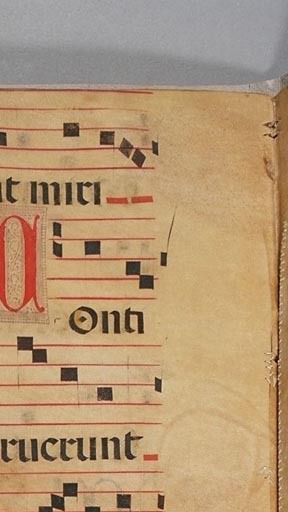 t miri
a
Onti
rucrunt